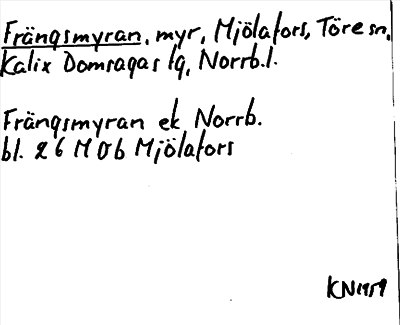 Frängsmyran, myr, Mjölafors, Töre sn,
Kalix Domsagas tg, Norrb.l.
Frängsmyran ek Norrb.
bl. 26 M 0b Mjölafors
KN1959